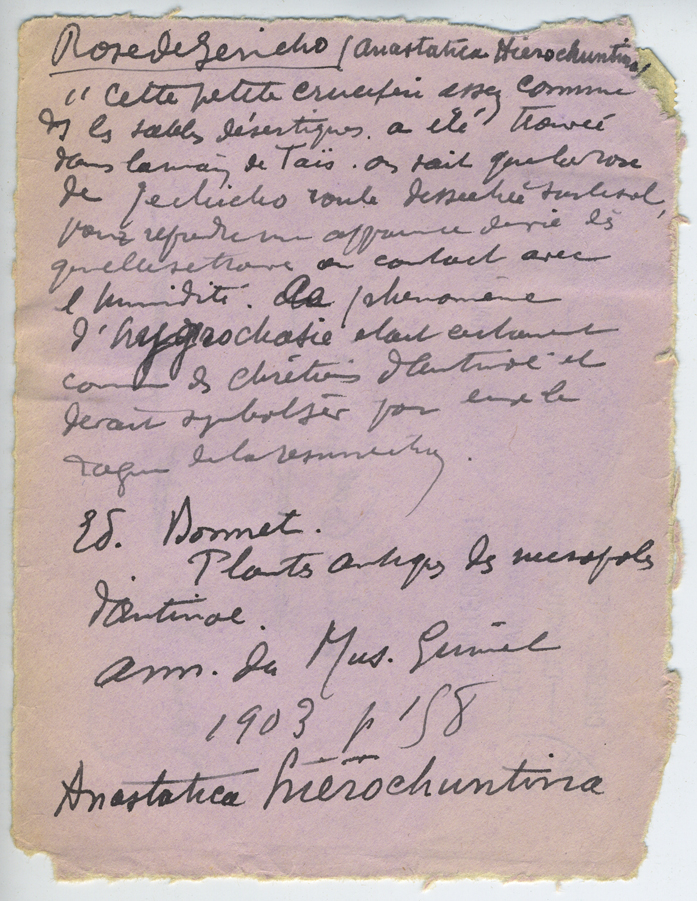 Rose de Jericho (Anastatica Hierochuntina)
" Cette petite crucifère assez commune
ds les sables désertiques. a été trouvée
dans la main de Taïs. on sait que la rose
de Jechicho roule desséchée sur le sol,
pour reprendre une apparence de vie dès
qu'elle se trouve en contact avec
l'humidité. Ce phénomène
d'hygrochasie était certainement
connu des chrétiens d'Antinoë et
devait symboliser pour eux le
dogme de la résurrection.
Ed. Bonnet.
Plantes antiques des nécropoles
d'Antinoe.
Ann. du Mus. Guimet
1903 p 158
Anastatica hierochuntina